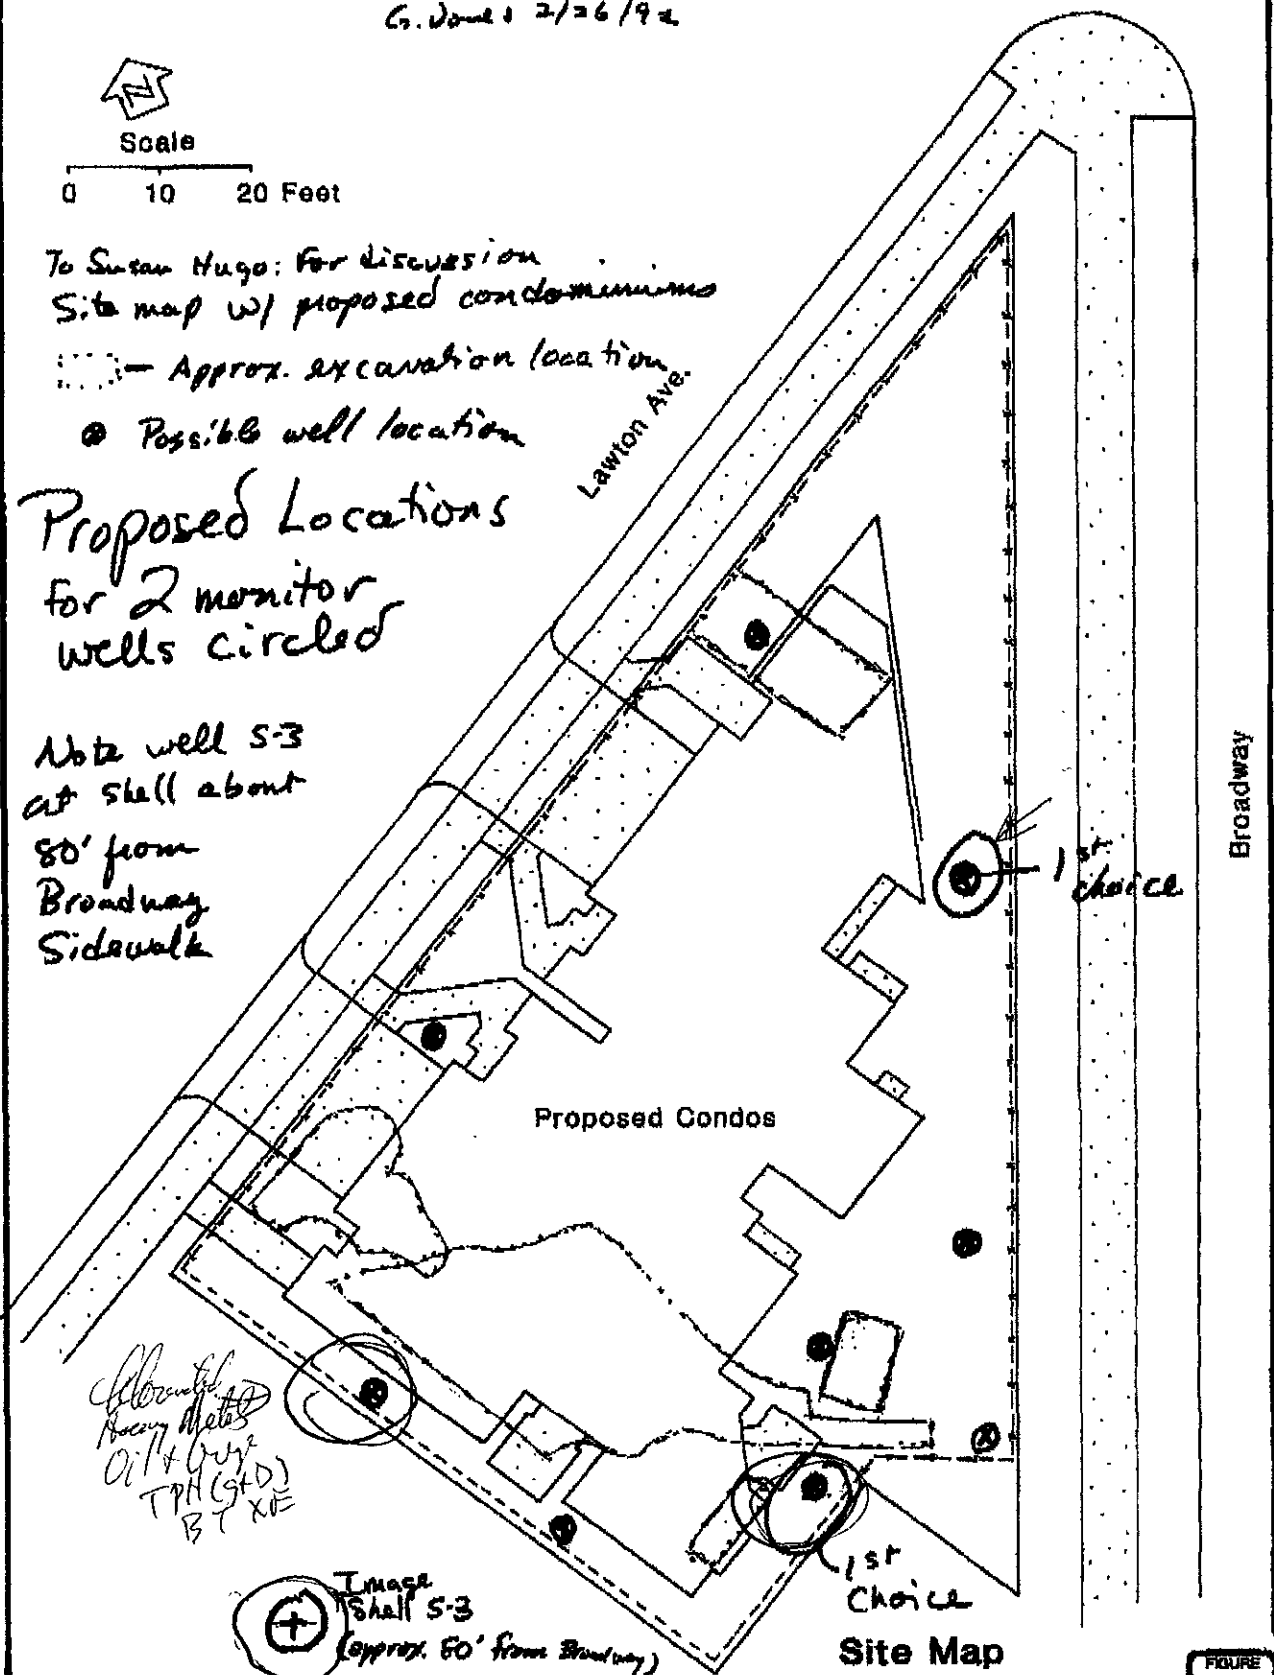 G. Jones 2/26/92
N
Scale
0 10 20 Feet
To Susan Hugo: For discussion
Site map w/ proposed condominiums
— Approx. excavation location
Possible well location
Proposed Locations
for 2 monitor
wells circled
Note well S-3
at Shell about
80' from
Broadway
Sidewalk
Lawton Ave.
Broadway
1st
choice
Proposed Condos
Heavy Metals
Oil &
TPH (G+D)
BTXE
Image
Shell S-3
(approx. 80' from Broadway)
1st
Choice
Site Map
FIGURE